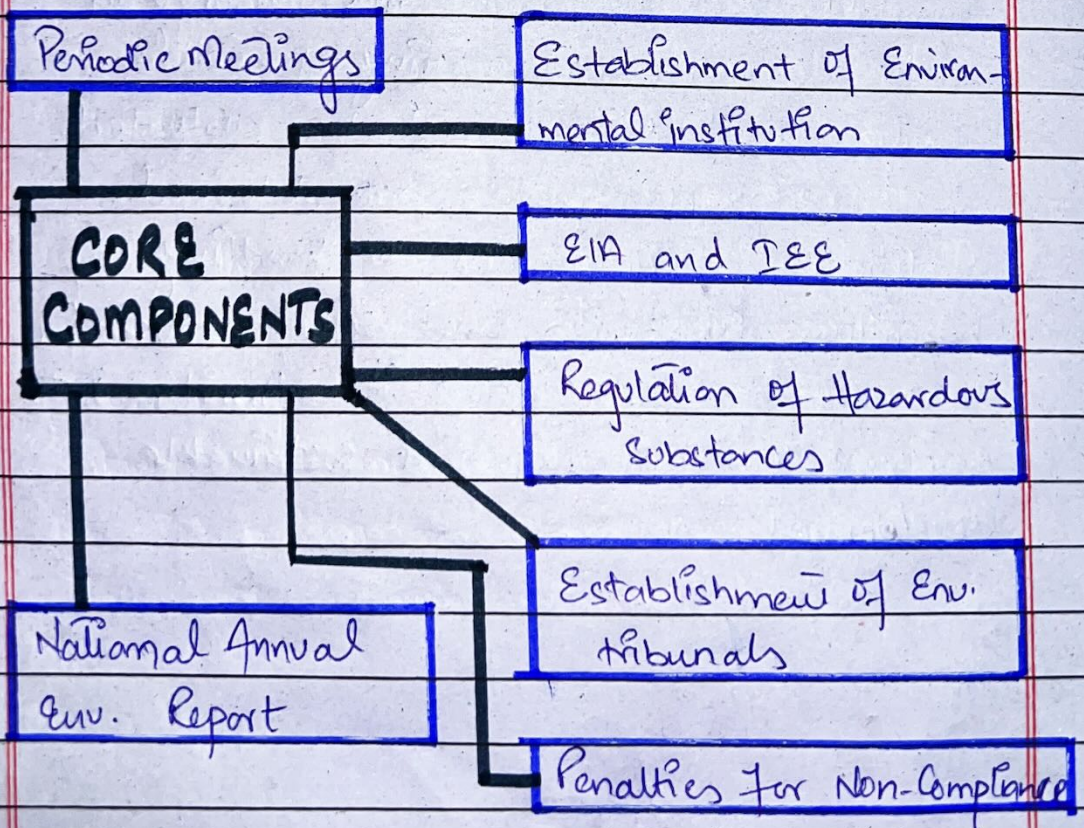 Periodic Meetings
Establishment of Environ-
mental institution
CORE
COMPONENTS
EIA and IEE
Regulation of Hazardous
Substances
Establishment of Env.
tribunals
National Annual
Env. Report
Penalties for Non-Compliance